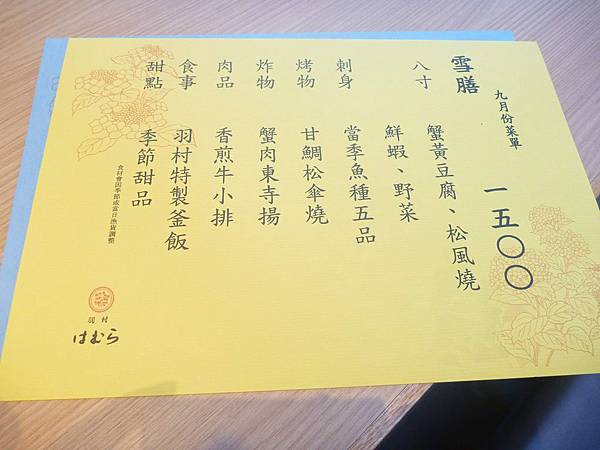 九月份菜單
雪膳 一五〇〇
八寸 蟹黃豆腐、松風燒
鮮蝦、野菜
刺身 當季魚種五品
烤物 甘鯛松傘燒
炸物 蟹肉東寺揚
肉品 香煎牛小排
食事 羽村特製釜飯
甜點 季節甜品
食材會因季節或當日漁貨調整
羽村
はむら